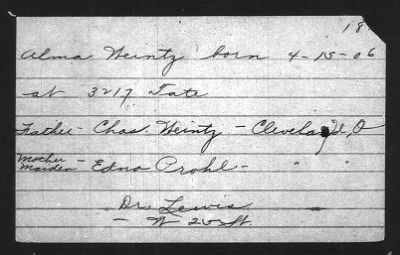 18
Alma Weintz born 4-15-06
at 3217 Tate
Father - Chas. Weintz - Cleveland, O
Mother
Maiden - Edna Prohl - " "
Dr. Lewis
- W 25 St.